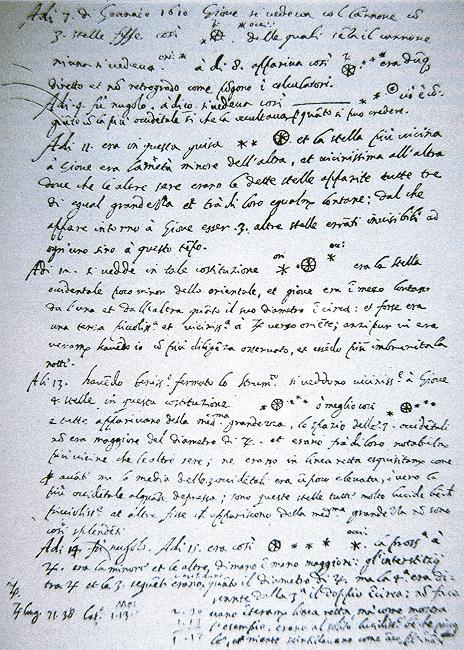 Adi 7. di Gennaio 1610 Giove si vedeva col Cannone cõ
3. stelle fisse così delle quali sẽza il cannone
niuna si vedeva. à dì 8. appariva così era dũq
diretto et nõ retrogrado come põgono i calculatori.
Adi 9. fù nugolo. à dì 10. si vedeva così cioè cõ-
giũto cõ la più occidẽtale sì che la occultava p quãto si può credere.
Adi 11. era in questa guisa et la stella più vicina
à Giove era la metà minore dell'altra, et vicinissima all'altra
dove che le altre sere erano le dette stelle apparite tutte tre
di egual grandezza et trà di loro egualm lontane; dal che
appare intorno à Giove esser .3. altre stelle errãti invisibili ad
ogn'uno sino à questo tẽpo.
Adi 12. si vedde in tale costituzione era la stella
occidentale poco minor della orientale, et giove era ĩ mezo lontano
da l'una et dall'altra quãto il suo diametro ĩ circa: et forse era
una terza piccoliss et viciniss à ♃ verso oriẽte; anzi pur vi era
veram havẽdo io cõ più diligẽza osservato, et essẽdo più imbrunita la
notte.
Adi 13. havẽdo beniss fermato lo strum si veddono viciniss à Giove
4 stelle in questa costituzione ò meglio così
e tutte apparivano della med grandezza, lo spazio delle 3. occidẽtali
nõ era maggiore del diametro di ♃. et erano frà di loro notabilm
più vicine che le altre sere; ne erano in linea retta esquisitamẽte come
p avãti ma la media delle 3 occidẽtali era ũ poco elevata, ò vero la
più occidẽtale alquãto depressa; sono queste stelle tutte molto lucide bẽche
piccoliss et altre fisse che appariscono della med grandezza nõ sono
così splendẽti.
Adi 14. fù nugolo. Adi 15. era così la pross à
♃. era la minore et le altre di mano ĩ mano maggiori: gl'interstizij
tra ♃ et le 3. seguẽti erano, quãto il diametro di ♃. ma la 4 era di-
stante dalla 3 il doppio ĩ circa: nõ face-
vano ĩteram linea retta, ma come mostra
l'esempio, erano al solito lucidiss bẽche picc
le, et niente scintillavano come
♃ long. 71.38 lat. 1.13